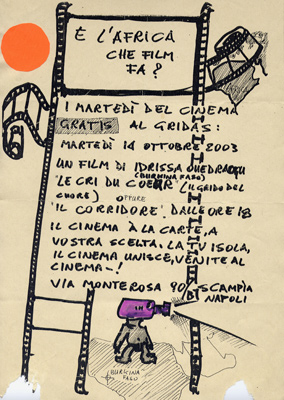 È L'AFRICA
CHE FILM
FA?
I MARTEDÌ DEL CINEMA
GRATIS AL GRIDAS:
MARTEDÌ 14 OTTOBRE 2003
UN FILM DI IDRISSA OUEDRAOGU
(BURKINA FASO)
"LE CRI DU COEUR" (IL GRIDO DEL
CUORE) OPPURE
"IL CORRIDORE". DALLE ORE 18
IL CINEMA À LA CARTE, A
VOSTRA SCELTA. LA TV ISOLA,
IL CINEMA UNISCE, VENITE AL
CINEMA-!
VIA MONTEROSA 90/B SCAMPIA
NAPOLI
BURKINA
FASO